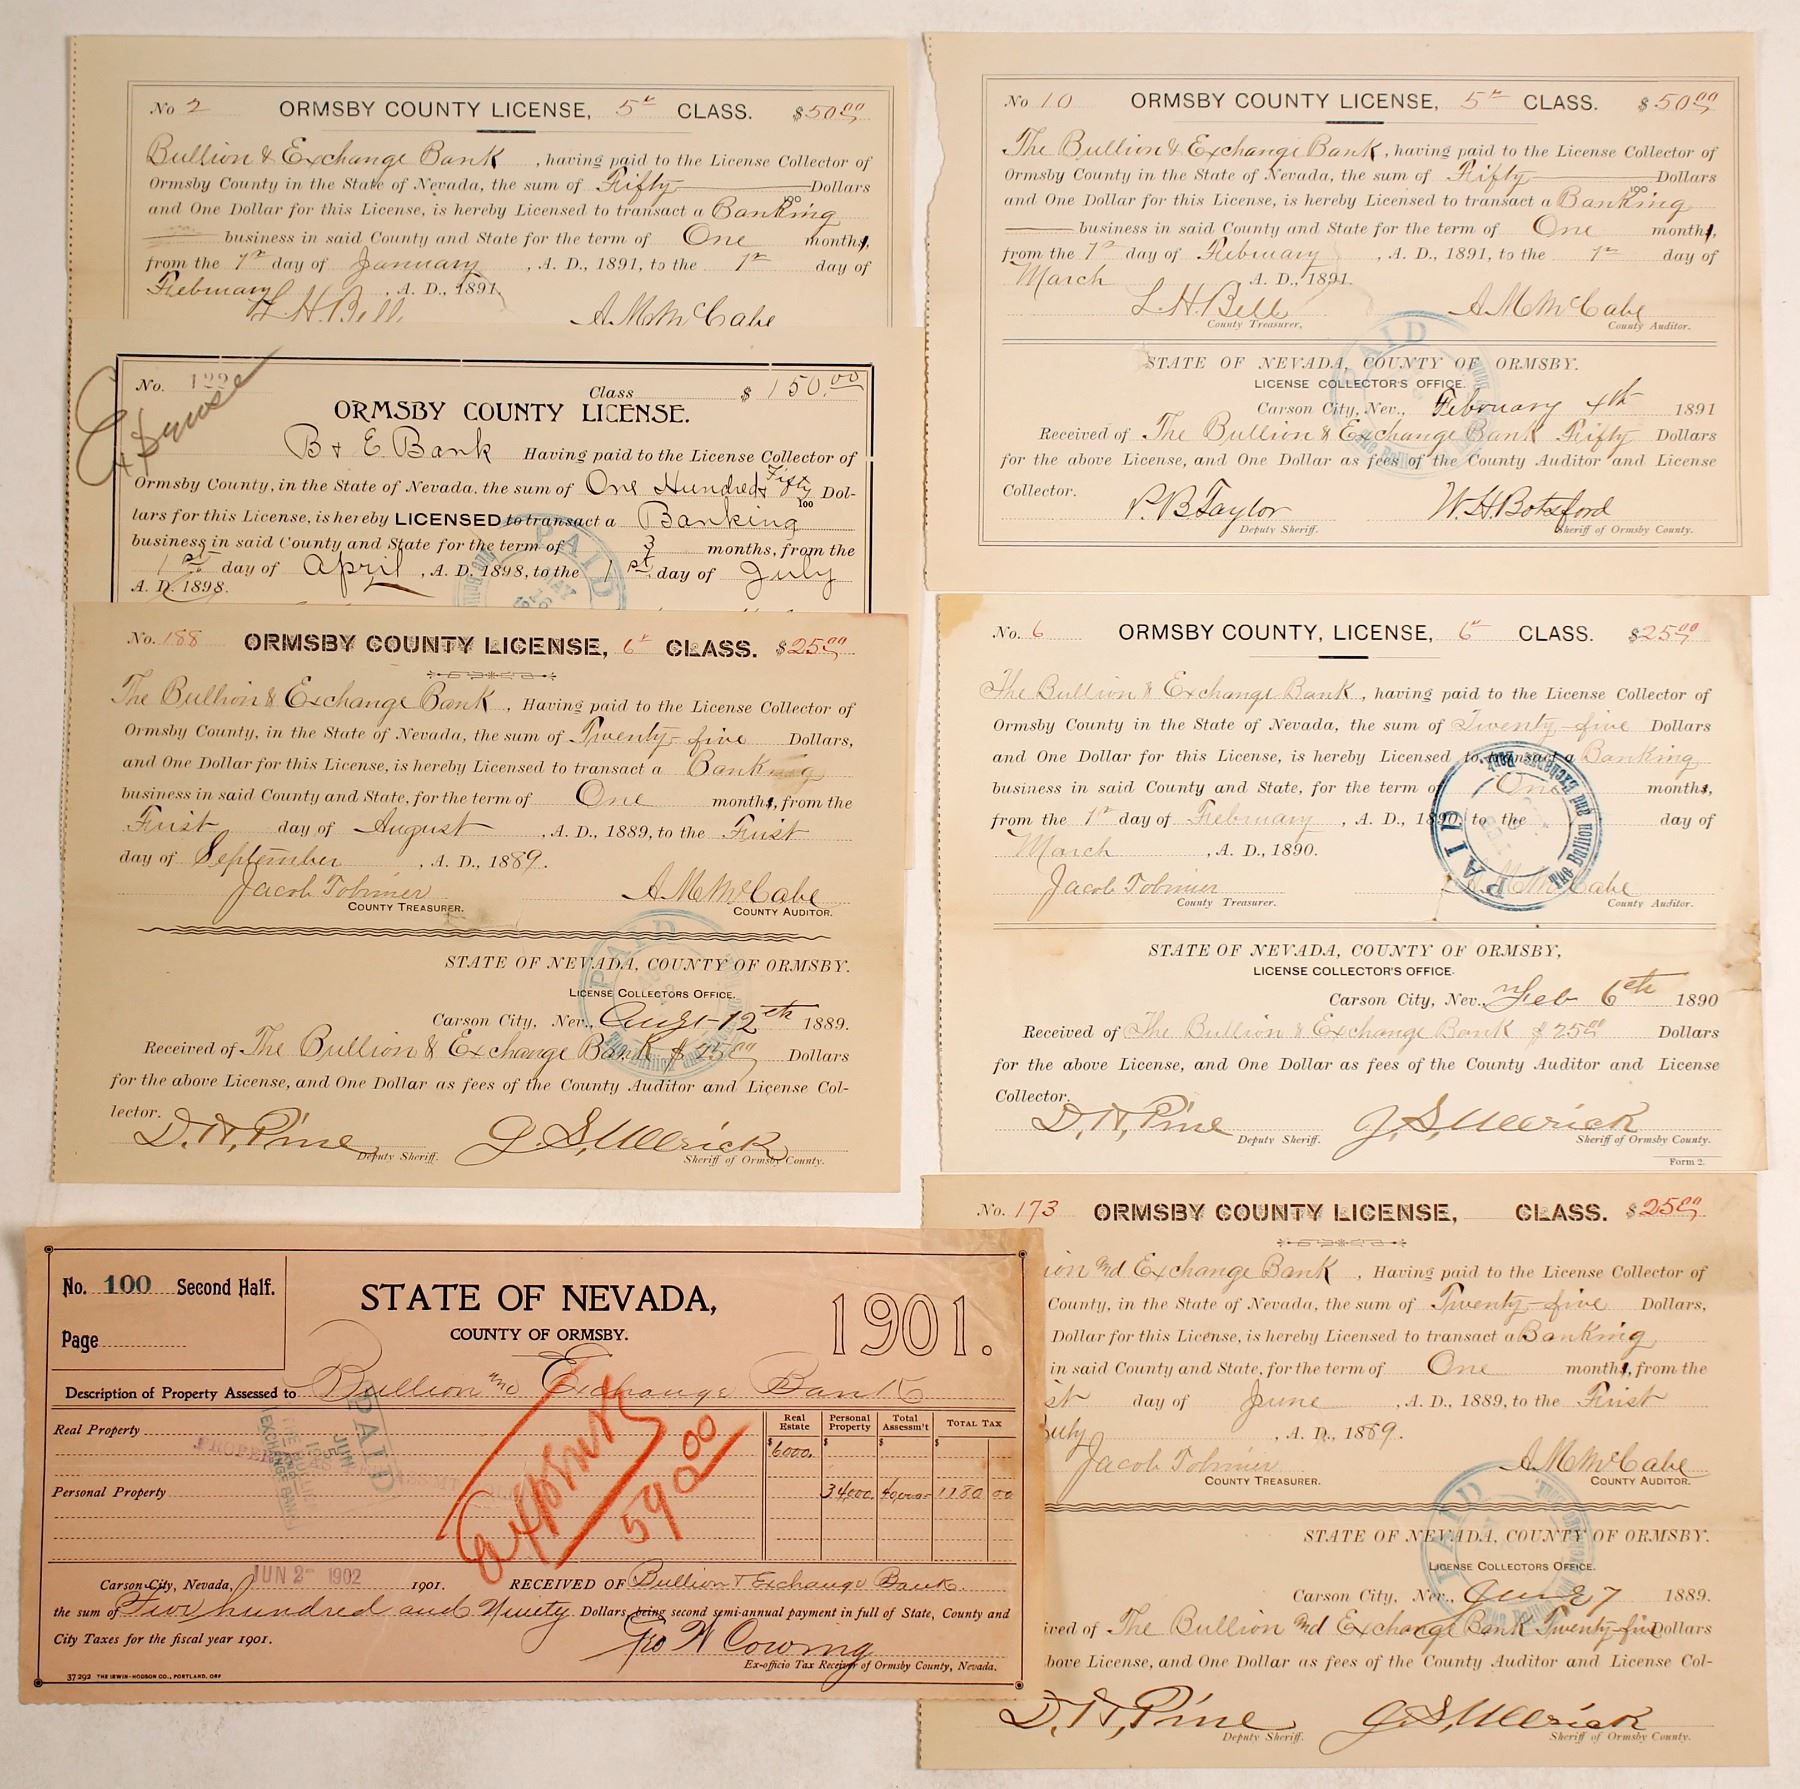 No 2 ORMSBY COUNTY LICENSE, 5th CLASS. $50.00
Bullion & Exchange Bank, having paid to the License Collector of
Ormsby County in the State of Nevada, the sum of Fifty Dollars
100
and One Dollar for this License, is hereby Licensed to transact a Banking
business in said County and State for the term of One months,
from the 1st day of January, A. D., 1891, to the 1st day of
February, A. D., 1891.
L. H. Bell A M McCabe
No. 122 Class $ 150.00
Expense
ORMSBY COUNTY LICENSE.
B & E Bank Having paid to the License Collector of
Ormsby County, in the State of Nevada. the sum of One Hundred & Fifty Dol-
100
lars for this License, is hereby LICENSED to transact a Banking
business in said County and State for the term of 3 months, from the
1st day of April, A. D. 1898, to the 1st day of July
A. D. 1898.
PAID
No. 188 ORMSBY COUNTY LICENSE, 6th CLASS. $25.00
The Bullion & Exchange Bank, Having paid to the License Collector of
Ormsby County, in the State of Nevada, the sum of Twenty-five Dollars,
and One Dollar for this License, is hereby Licensed to transact a Banking
business in said County and State, for the term of One months, from the
First day of August, A. D., 1889, to the First
day of September, A. D., 1889.
Jacob Tobriner A M McCabe
COUNTY TREASURER. COUNTY AUDITOR.
PAID
STATE OF NEVADA, COUNTY OF ORMSBY.
LICENSE COLLECTORS OFFICE.
Carson City, Nev., Augt 12th 1889.
Received of The Bullion & Exchange Bank $25.00 Dollars
for the above License, and One Dollar as fees of the County Auditor and License Col-
lector.
D. H. Pine J. S. Ullrick
Deputy Sheriff. Sheriff of Ormsby County.
No. 100 Second Half.
Page
STATE OF NEVADA,
COUNTY OF ORMSBY.
1901.
Description of Property Assessed to Bullion and Exchange Bank
Real Estate Personal Property Total Assessm't TOTAL TAX
Real Property $6000. $ $ $
Personal Property 34000. 40000- 1180 00
PAID
JUN
THE BULLION AND
EXCHANGE BANK
590.00
Carson City, Nevada, JUN 2- 1902 1901. RECEIVED OF Bullion & Exchange Bank
the sum of Five hundred and Ninety Dollars, being second semi-annual payment in full of State, County and
City Taxes for the fiscal year 1901.
Geo W Cowing
Ex-officio Tax Receiver of Ormsby County, Nevada.
37292 THE IRWIN-HODSON CO., PORTLAND, ORE
No 10 ORMSBY COUNTY LICENSE, 5th CLASS. $50.00
The Bullion & Exchange Bank, having paid to the License Collector of
Ormsby County in the State of Nevada, the sum of Fifty Dollars
100
and One Dollar for this License, is hereby Licensed to transact a Banking
business in said County and State for the term of One months,
from the 1st day of February, A. D., 1891, to the 1st day of
March A. D., 1891.
L. H. Bell A M McCabe
County Treasurer, County Auditor.
PAID
STATE OF NEVADA, COUNTY OF ORMSBY.
LICENSE COLLECTOR'S OFFICE.
Carson City, Nev., February 4th 1891
Received of The Bullion & Exchange Bank Fifty Dollars
for the above License, and One Dollar as fees of the County Auditor and License
Collector.
P. B Taylor W. H. Botsford
Deputy Sheriff. Sheriff of Ormsby County.
No. 6 ORMSBY COUNTY, LICENSE, 6th CLASS. $25.00
The Bullion & Exchange Bank, having paid to the License Collector of
Ormsby County in the State of Nevada, the sum of Twenty-five Dollars
and One Dollar for this License, is hereby Licensed to transact a Banking
business in said County and State, for the term of One months,
from the 1st day of February, A. D., 1890, to the day of
March, A. D., 1890.
Jacob Tobriner A M McCabe
County Treasurer. County Auditor.
PAID
The Bullion and Exchange Bank
STATE OF NEVADA, COUNTY OF ORMSBY,
LICENSE COLLECTOR'S OFFICE.
Carson City, Nev., Feb 6th 1890
Received of The Bullion & Exchange Bank $25.00 Dollars
for the above License, and One Dollar as fees of the County Auditor and License
Collector.
D. H. Pine J. S. Ullrick
Deputy Sheriff. Sheriff of Ormsby County.
Form 2.
No. 173 ORMSBY COUNTY LICENSE, CLASS. $25.00
ion and Exchange Bank, Having paid to the License Collector of
County, in the State of Nevada, the sum of Twenty-five Dollars,
Dollar for this License, is hereby Licensed to transact a Banking
in said County and State, for the term of One months, from the
st day of June, A. D., 1889, to the First
July, A. D., 1889.
Jacob Tobriner A M McCabe
COUNTY TREASURER. COUNTY AUDITOR.
PAID
STATE OF NEVADA, COUNTY OF ORMSBY.
LICENSE COLLECTORS OFFICE.
Carson City, Nev., June 7 1889.
ived of The Bullion and Exchange Bank Twenty-five Dollars
bove License, and One Dollar as fees of the County Auditor and License Col-
D. H. Pine J. S. Ullrick
Deputy Sheriff. Sheriff of Ormsby County.